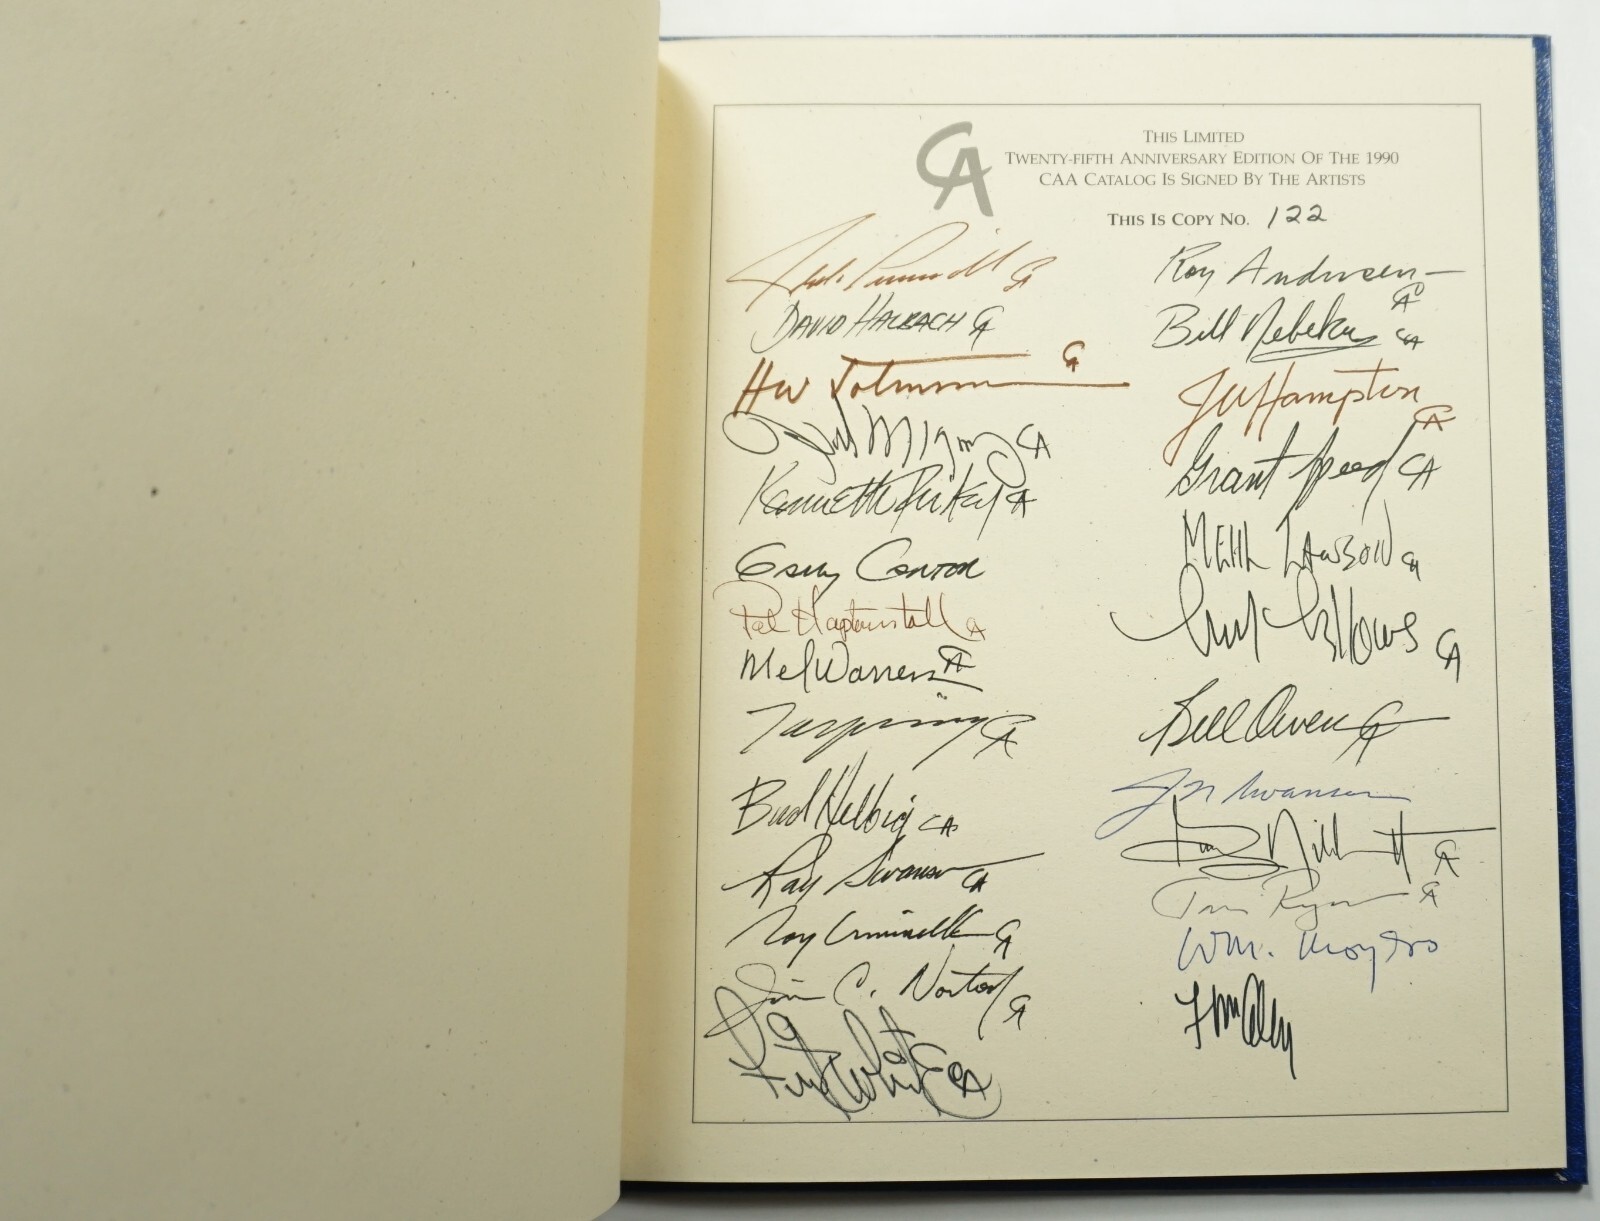 CA
THIS LIMITED
TWENTY-FIFTH ANNIVERSARY EDITION OF THE 1990
CAA CATALOG IS SIGNED BY THE ARTISTS
THIS IS COPY NO. 122
CA
DAVID HALBACH CA
CA
CA
Kenneth Riley CA
Gary Carter
Pat Haptonstall CA
Mel Warren CA
CA
Bud Helbig CA
Ray Swanson CA
CA
Jim C. Norton CA
Fritz White CA
Roy Andersen
CA
Bill Nebeker CA
JW Hampton
CA
Grant Speed CA
MEHL LAWSON CA
Fellows CA
Bill Owen CA
Swanson
CA
Tom Ryan CA
Wm. Moyers